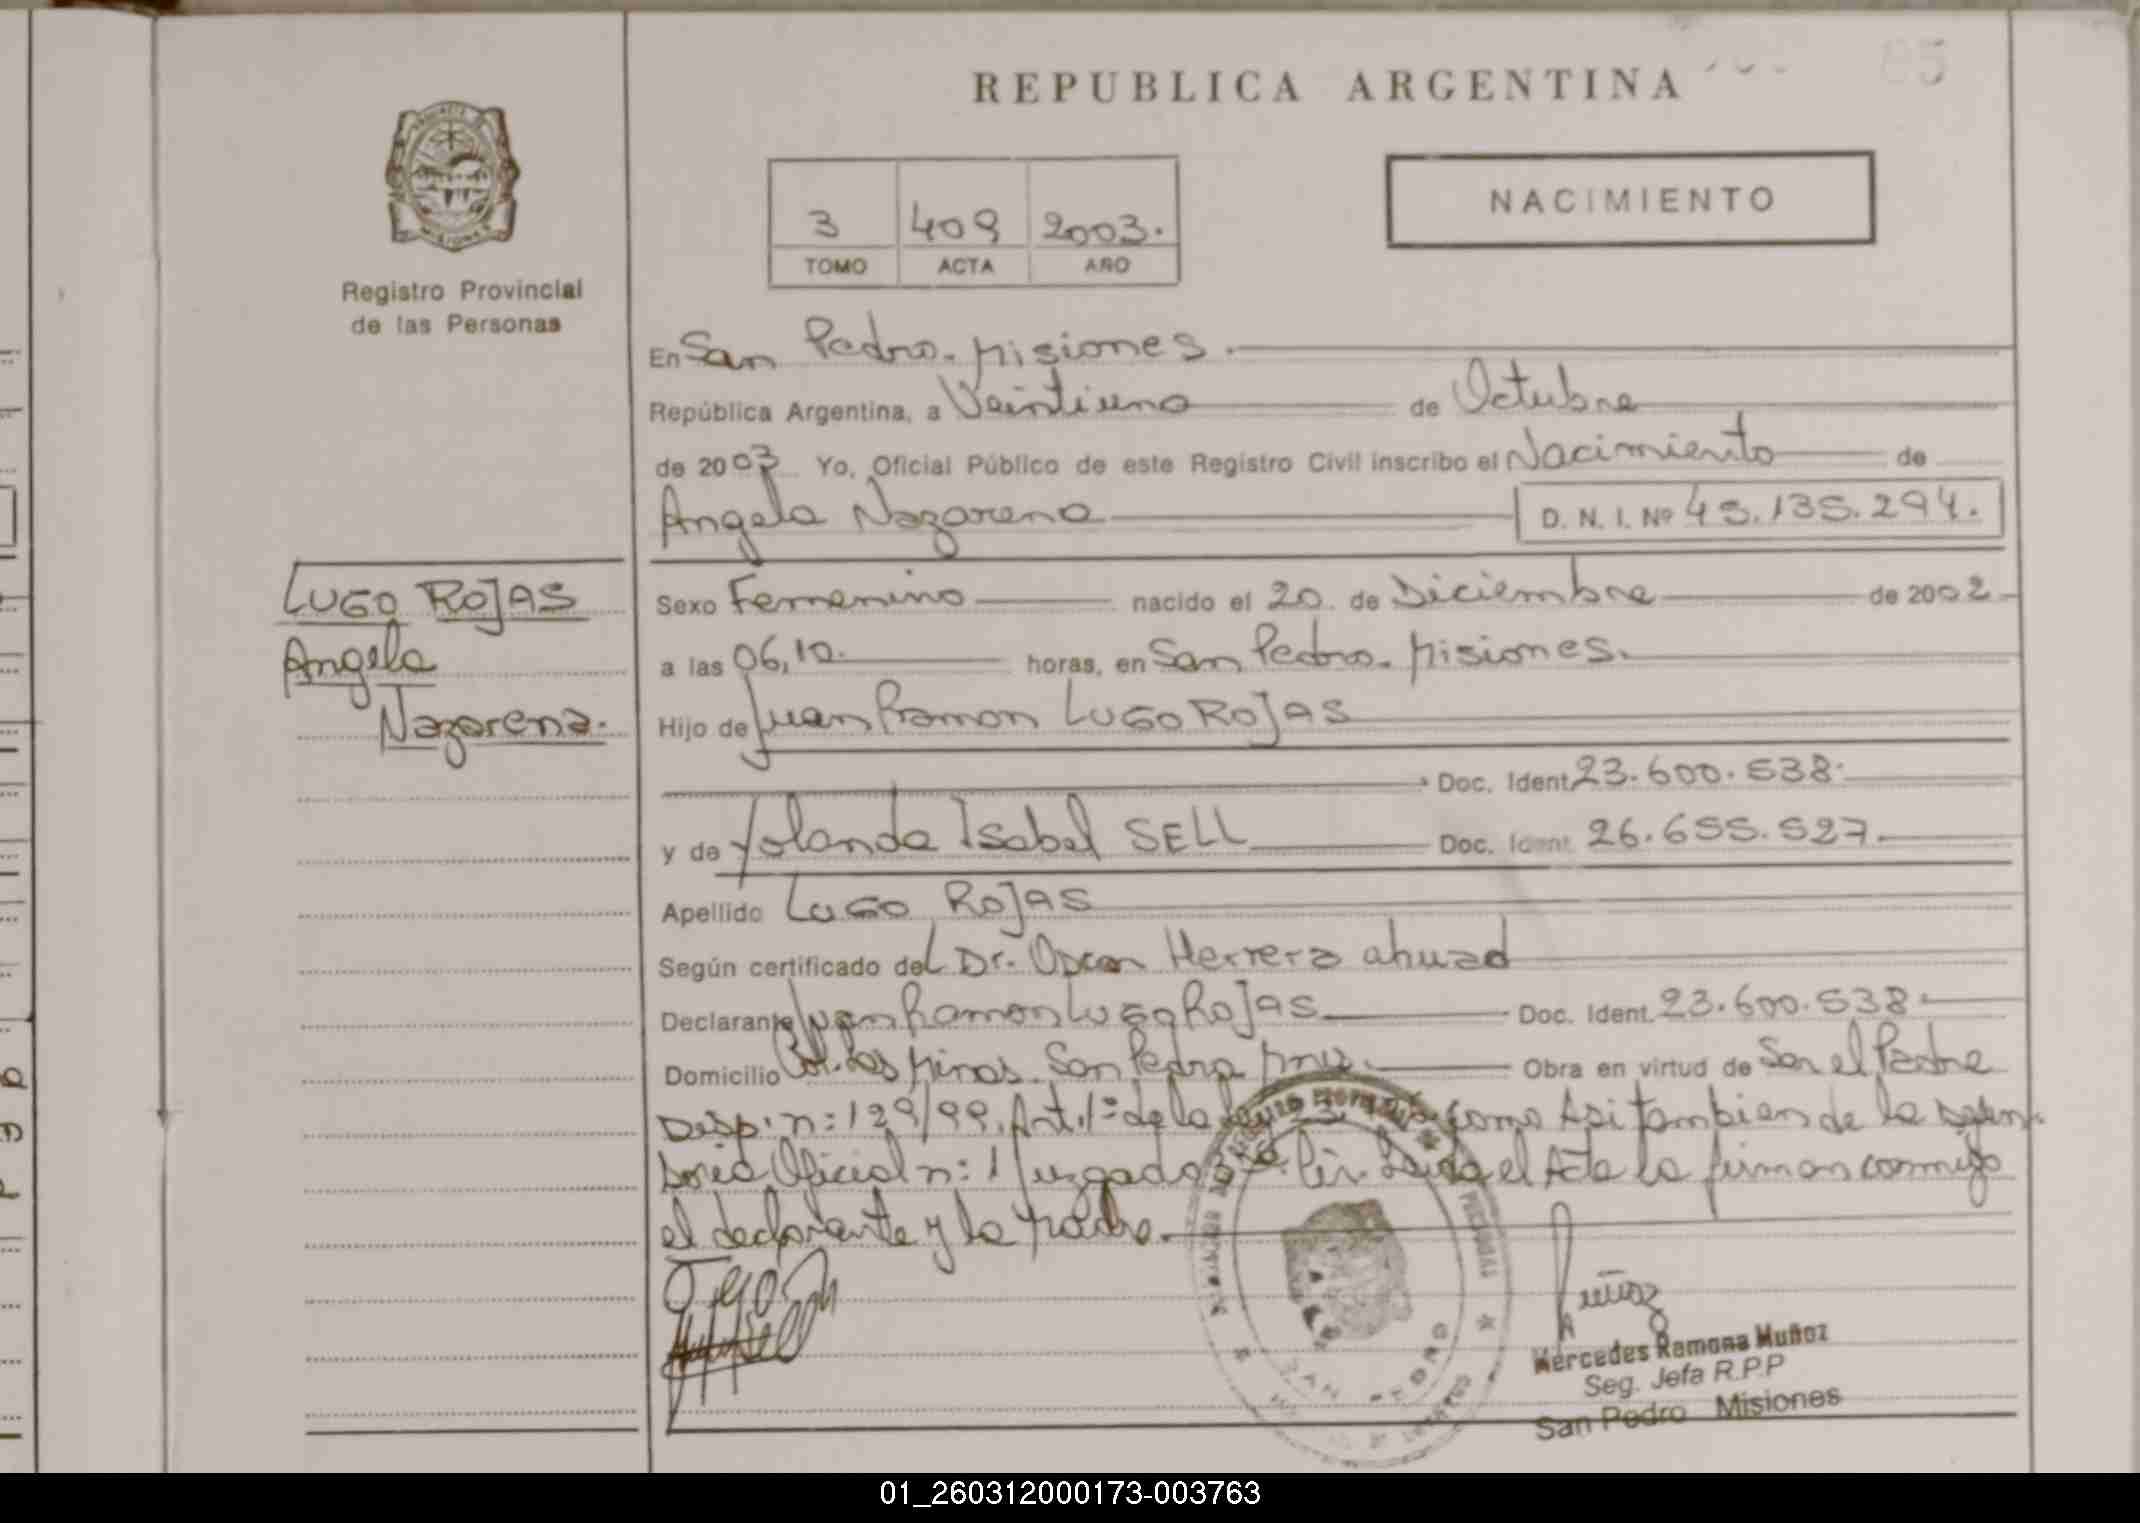 REPUBLICA ARGENTINA
Registro Provincial
de las Personas
3 409 2003.
TOMO ACTA AÑO
NACIMIENTO
En San Pedro. Misiones.
República Argentina, a Veintiuno de Octubre
de 2003 Yo, Oficial Público de este Registro Civil inscribo el Nacimiento de
Angela Nazarena D. N. I. Nº 45.135.294.
LUGO ROJAS
Angela
Nazarena.
Sexo Femenino nacido el 20 de Diciembre de 2002
a las 06,10. horas, en San Pedro. Misiones.
Hijo de Juan Ramon LUGO ROJAS
Doc. Ident. 23.600.538.
y de Yolanda Isabel SELL Doc. Ident. 26.655.527.
Apellido LUGO ROJAS
Según certificado del Dr. Oscar Herrera ahuad
Declarante Juan Ramon Lugo Rojas Doc. Ident. 23.600.538.
Domicilio Col. Las Minas. San Pedro Mnes. Obra en virtud de Ser el Padre
Disp. n: 129/99. Art. 1º de la Ley como Asi tambien de la Defen-
soria Oficial n: 1 Juzgado Leida el Acta la firman conmigo
el declarante y la madre.
Muñoz
Mercedes Ramona Muñoz
Seg. Jefa R.P.P
San Pedro Misiones
SAN PEDRO
01_260312000173-003763